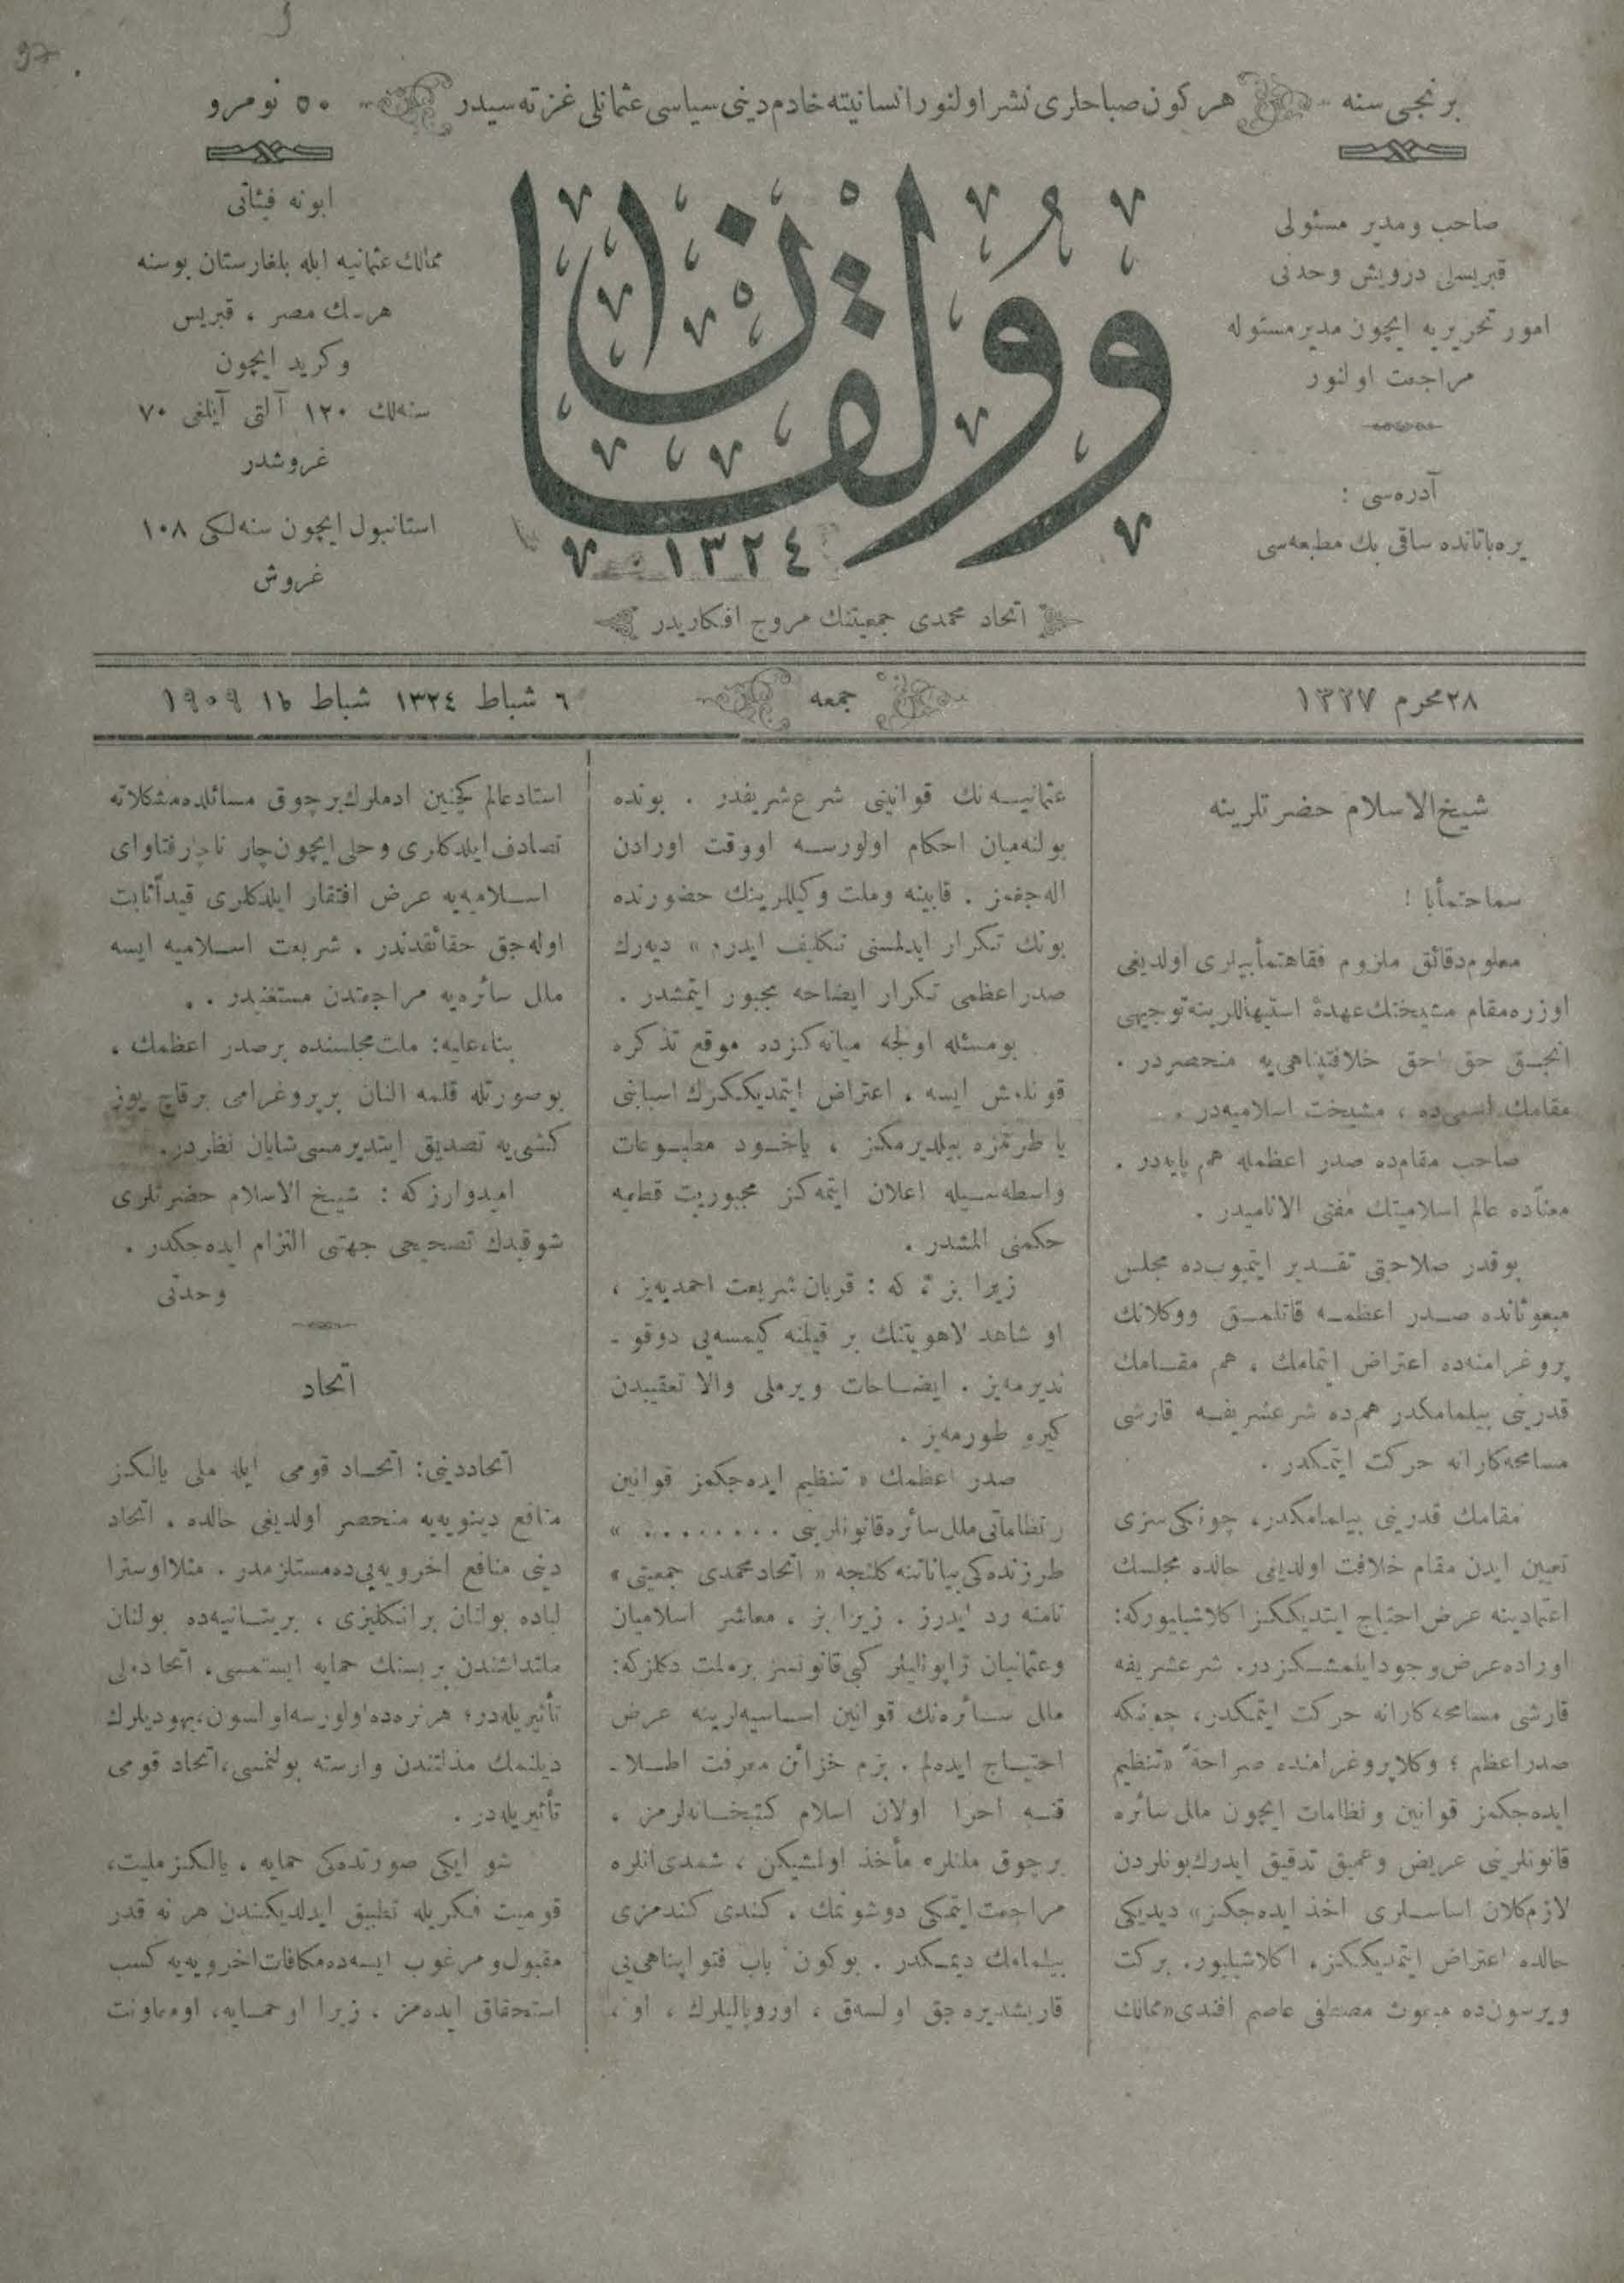 برنجی سنه
هر كون صباحلری نشر اولنور انسانیته خادم دینی سیاسی عثمانلی غزته سیدر
٥٠ نومرو
صاحب ومدیر مسئولی
قبریسلی درویش وحدتی
امور تحریریه ایچون مدیر مسئوله
مراجعت اولنور
آدره‌سی :
یره‌باتانده ساقی بك مطبعه‌سی
وولقان
١٣٢٤
ابونه فیئاتی
ممالك عثمانیه ایله بلغارستان بوسنه
هرسك مصر ، قبریس
وكرید ایچون
سنه‌لك ١٢٠ آلتی آیلغی ٧٠
غروشدر
استانبول ایچون سنه‌لكی ١٠٨
غروش
اتحاد محمدی جمعیتنك مروج افكاریدر
٢٨ محرم ١٣٢٧
جمعه
٦ شباط ١٣٢٤ شباط ١٩٠٩
شیخ الاسلام حضرتلرینه
سماحتمأبا !
معلوم دقائق ملزوم فقاهتمأبیلری اولدیغی
اوزره مقام مشیختك عهدهٔ استیهاللرینه توجیهی
انجـق حق احق خلافتپناهی‌یه منحصردر .
مقامك اسمی‌ده ، مشیخت اسلامیه‌در .
صاحب مقام‌ده صدر اعظمله هم پایه‌در .
معنأده عالم اسلامیتك مفتی الانامیدر .
بوقدر صلاحیتی تقـدیر ایتمیوب‌ده مجلس
مبعوثانده صـدر اعظمـه قاتلمـق ووكلانك
پروغرامنه‌ده اعتراض ایتمامك ، هم مقـامك
قدرینی بیلمامكدر هم‌ده شرعشریفـه قارشی
مسامحه‌كارانه حركت ایتمـكدر .
مقامك قدرینی بیلمامكدر، چونكی سزی
تعیین ایدن مقام خلافت اولدیغی حالده مجلسك
اعتمادینه عرض احتیاج ایتدیككز اكلاشیلیوركه:
اوراده عرض وجود ایلمشـكز در. شرعشریفه
قارشی مسامحه كارانه حركت ایتمكدر، چونكه
صدر اعظم ؛ وكلا پروغرامنده صراحةً «تنظیم
ایده‌جكمز قوانین ونظامات ایچون ملل سائره
قانونلرینی عریض وعمیق تدقیق ایدرك بونلردن
لازم كلان اساسـلری اخذ ایده‌جكز» دیدیكی
حالده اعتراض ایتمدیككز، اكلاشیلیور. بركت
ویرسون‌ده مبعوث مصطفی عاصم افندی «ممالك
عثمانیـه‌نك قوانینی شرع شریفدر . بونده
بولنه‌میان احكام اولورسـه اووقت اورادن
اله‌جغمز . قابینه وملت وكیللرینك حضورنده
بونك تـكرار ایدلمسنی تـكلیف ایدرم » دیه‌رك
صدر اعظمی تـكرار ایضاحه مجبور ایتمشدر .
بومسئله اولجه میانه‌كزده موقع تذكره
قونلمش ایسه ، اعتراض ایتمدیككزك اسبابنی
یا طرفمزه بیلدیرمكز ، یاخـود مطبـوعات
واسطه‌سـیله اعلان ایتمه‌كز مجبوریت قطعیه
حكمنی المشدر .
زیرا بز كه : قربان شریعت احمدیه‌یز ،
او شاهد لاهویتنك بر قیلنه كیمسه‌یی دوقو ـ
ندیرمه‌یز . ایضـاحات ویرملی والا تعقیبدن
كیرو طورمه‌یز .
صدر اعظمك « تنظیم ایده‌جكمز قوانین
ونظاماتی ملل سائره قانونلرینی . . . . . . . . »
طرزنده‌كی بیاناتنه كلنجه « اتحاد محمدی جمعیتی »
نامنه رد ایدرز . زیرا بز ، معاشر اسلامیان
وعثمانیان ژاپونلیلر كبی قانونسز برملت دكلزكه:
ملل سـائره‌نك قوانین اسـاسیه‌لرینه عرض
احتیـاج ایده‌لم . بزم خزائن معرفت اطـلا ـ
قنـه احرا اولان اسلام كتبخـانه‌لرمز ،
برچوق ملتلره مأخذ اولمشیكن ، شمدی انلره
مراجعت ایتمكی دوشونمك ، كندی كندمزی
بیلمامك دیمـكدر . بوكون باب فتواپناهی‌یی
قاریشدیره‌جق اولسه‌ق ، اوروپالیلرك ، او ،
استاد عالم كچینن ادملرك برچوق مسائلده مشكلاته
تصادف ایلدكلری وحلی ایچون چار ناچار فتاوای
اسـلامیه‌یه عرض افتقار ایلدكلری قیداً ثابت
اوله‌جق حقائقدندر . شریعت اسـلامیه ایسه
ملل سائره‌یه مراجعتدن مستغنیدر . .
بناءعلیه: ملت مجلسنده برصدر اعظمك ،
بوصورتله قلمه النان برپروغرامی برقاچ یوز
كشی‌یه تصدیق ایتدیرمسی شایان نظردر.
امیدوارزكه : شیخ الاسلام حضرتلری
شوقیدك تصحیحی جهتی التزام ایده‌جكدر .
وحدتی
اتحاد
اتحاد دینی: اتحـاد قومی ایله ملی یالـكز
منافع دنیویه‌یه منحصر اولدیغی حالده . اتحاد
دینی منافع اخرویه‌یی‌ده مستلزمدر . مثلا اوسترا
لیاده بولنان برانكلیزی ، بریتـانیه‌ده بولنان
ملتداشندن بریسنك حمایه ایستمسی، اتحاد ملی
تأثیریله‌در؛ هر نره‌ده اولورسه اولسون، یهودیلرك
دیلنمك مذلتندن وارسته بولنمسی، اتحاد قومی
تأثیریله‌در .
شو ایكی صورتده‌كی حمایه ، یالـكز ملیت،
قومیت فـكریله تطبیق ایدلدیكندن هر نه قدر
مقبول ومرغوب ایسه‌ده مكافات اخرویه‌یه كسب
استحقاق ایده‌مز . زیرا او حمـایه، او معاونت